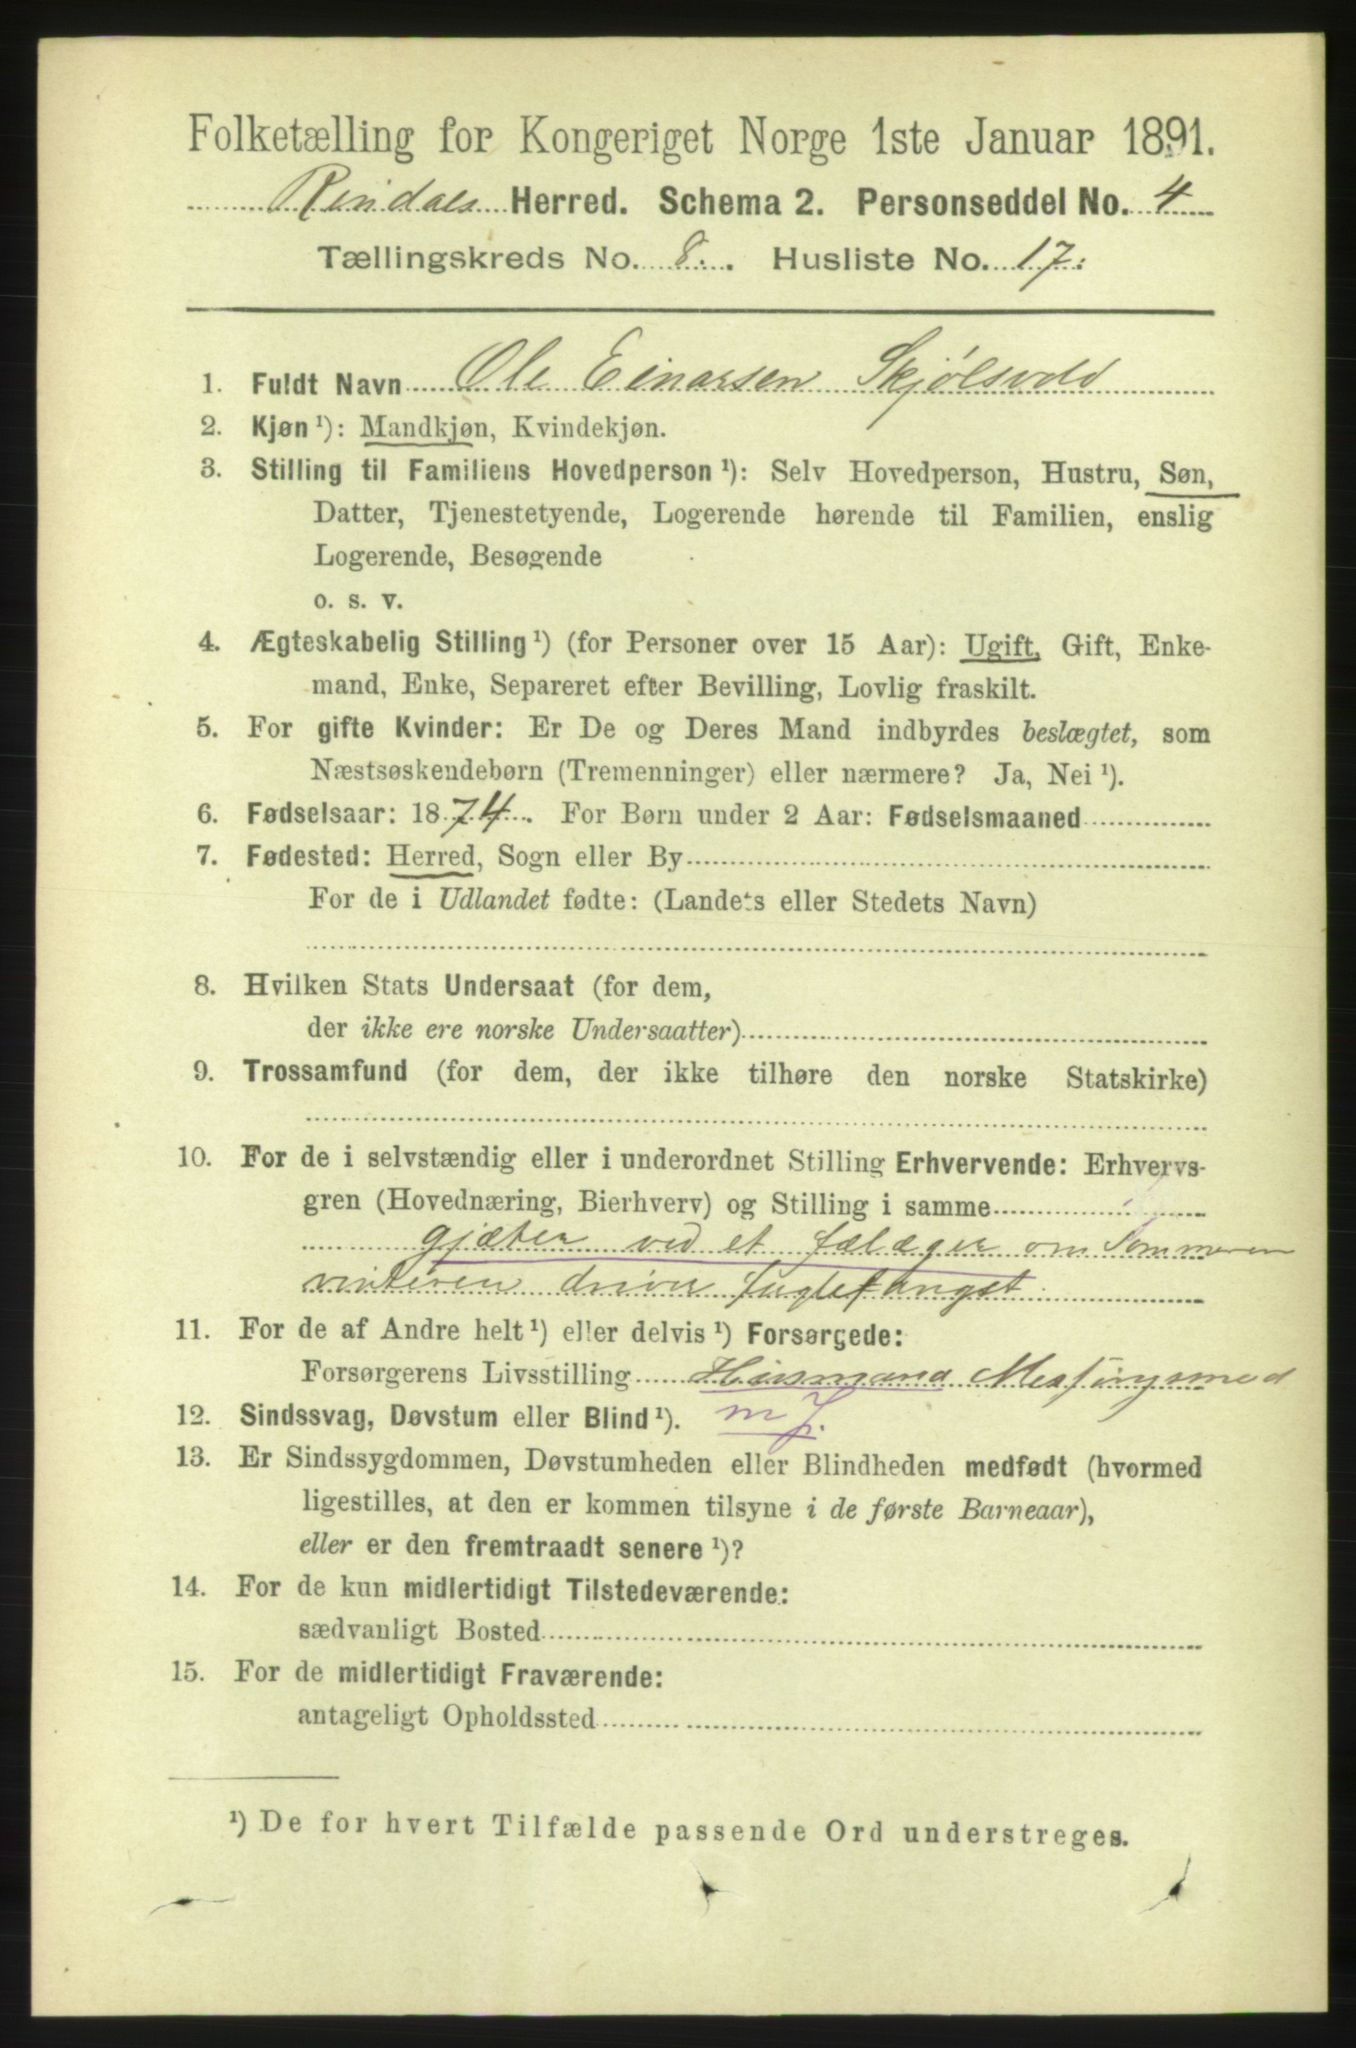 Folketælling for Kongeriget Norge 1ste Januar 1891.
Rindals Herred. Schema 2. Personseddel No. 4
Tællingskreds No. 8. Husliste No. 17.
1. Fuldt Navn Ole Einarsen Skjølsvold
2. Kjøn ¹): Mandkjøn, Kvindekjøn.
3. Stilling til Familiens Hovedperson ¹): Selv Hovedperson, Hustru, Søn,
Datter, Tjenestetyende, Logerende hørende til Familien, enslig
Logerende, Besøgende
o. s. v.
4. Ægteskabelig Stilling ¹) (for Personer over 15 Aar): Ugift, Gift, Enke-
mand, Enke, Separeret efter Bevilling, Lovlig fraskilt.
5. For gifte Kvinder: Er De og Deres Mand indbyrdes beslægtet, som
Næstsøskendebørn (Tremenninger) eller nærmere? Ja, Nei ¹).
6. Fødselsaar: 1874. For Børn under 2 Aar: Fødselsmaaned
7. Fødested: Herred, Sogn eller By
For de i Udlandet fødte: (Landets eller Stedets Navn)
8. Hvilken Stats Undersaat (for dem,
der ikke ere norske Undersaatter)
9. Trossamfund (for dem, der ikke tilhøre den norske Statskirke)
10. For de i selvstændig eller i underordnet Stilling Erhvervende: Erhvervs-
gren (Hovednæring, Bierhverv) og Stilling i samme
gjæter ved et fælæger om Sommeren
vinteren driver fuglefangst.
11. For de af Andre helt ¹) eller delvis ¹) Forsørgede:
Forsørgerens Livsstilling Husmand Messingsmed
12. Sindssvag, Døvstum eller Blind ¹). m J.
13. Er Sindssygdommen, Døvstumheden eller Blindheden medfødt (hvormed
ligestilles, at den er kommen tilsyne i de første Barneaar),
eller er den fremtraadt senere ¹)?
14. For de kun midlertidigt Tilstedeværende:
sædvanligt Bosted
15. For de midlertidigt Fraværende:
antageligt Opholdssted
¹) De for hvert Tilfælde passende Ord understreges.